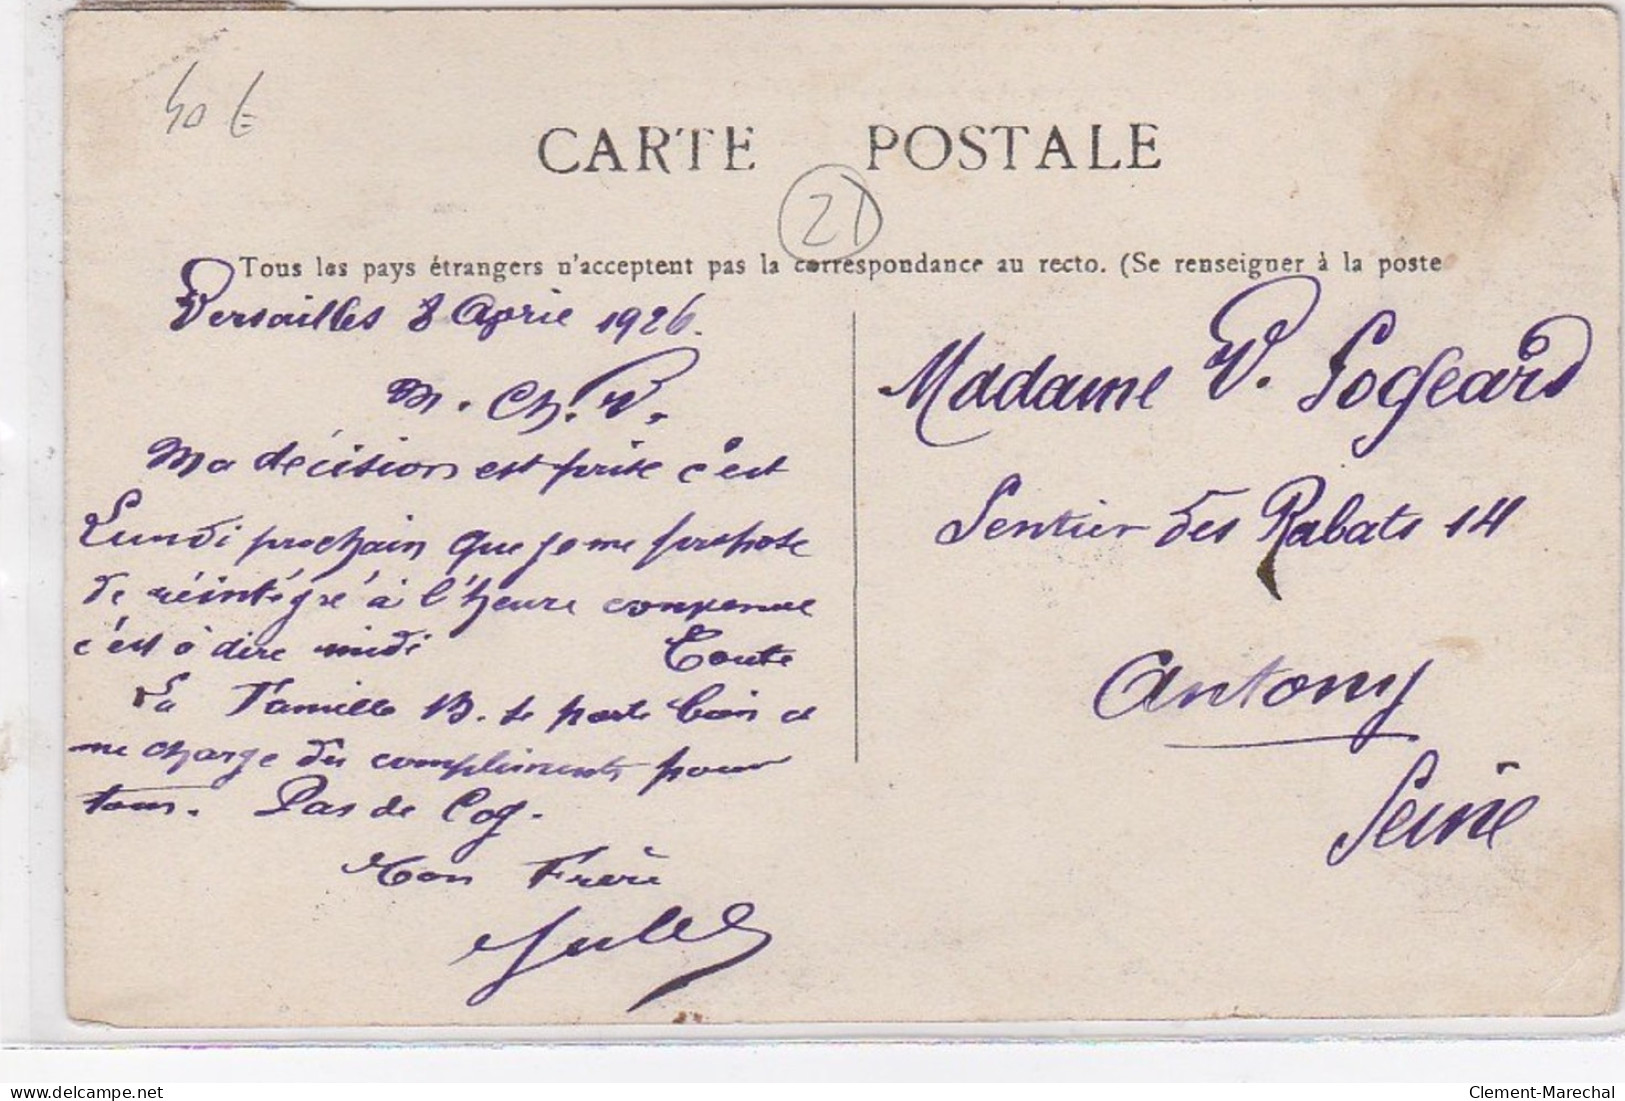 40 €
CARTE POSTALE
21
Tous les pays étrangers n'acceptent pas la correspondance au recto. (Se renseigner à la poste
Versailles 8 Aprie 1926.
M. Ch. V.
Ma décision est prise c'est
Lundi prochain que je me propose
de réintégré à l'heure convenue
c'est à dire midi Toute
La Famille B. se porte bien et
me charge du compliments pour
tous. Pas de Cog.
Ton Frère
Jules
Madame V. Fogeard
Sentier des Rabats 14
Antony
Seine
Clement-Marechal